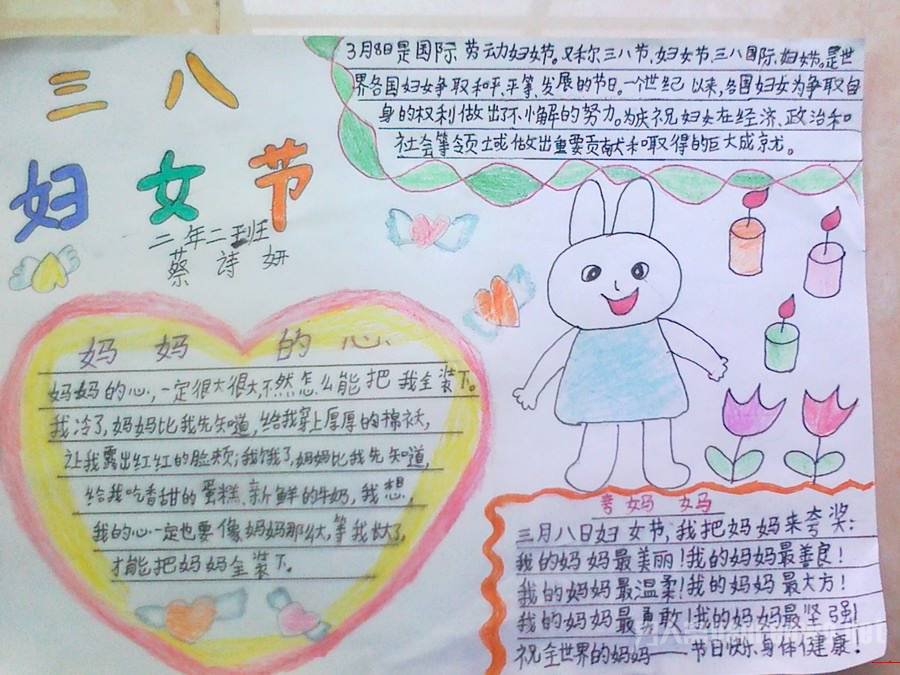 三八
妇女节
二年二班
蔡诗妍
3月8日是国际劳动妇女节。又称三八节、妇女节、三八国际妇女节。是世
界各国妇女争取和平、平等、发展的节日。一个世纪以来,各国妇女为争取自
身的权利做出了不小懈的努力。为庆祝妇女在经济、政治和
社会等领土或做出重要贡献和取得的巨大成就。
妈妈的心
妈妈的心,一定很大很大,不然怎么能把我全装下。
我冷了,妈妈比我先知道,给我穿上厚厚的棉袄,
让我露出红红的脸颊;我饿了,妈妈比我先知道,
给我吃香甜的蛋糕、新鲜的牛奶,我想,
我的心一定也要像妈妈那么大,等我长大了,
才能把妈妈全装下。
夸妈妈
三月八日妇女节,我把妈妈来夸奖:
我的妈妈最美丽!我的妈妈最善良!
我的妈妈最温柔!我的妈妈最大方!
我的妈妈最勇敢!我的妈妈最坚强!
祝全世界的妈妈——节日快乐、身体健康!